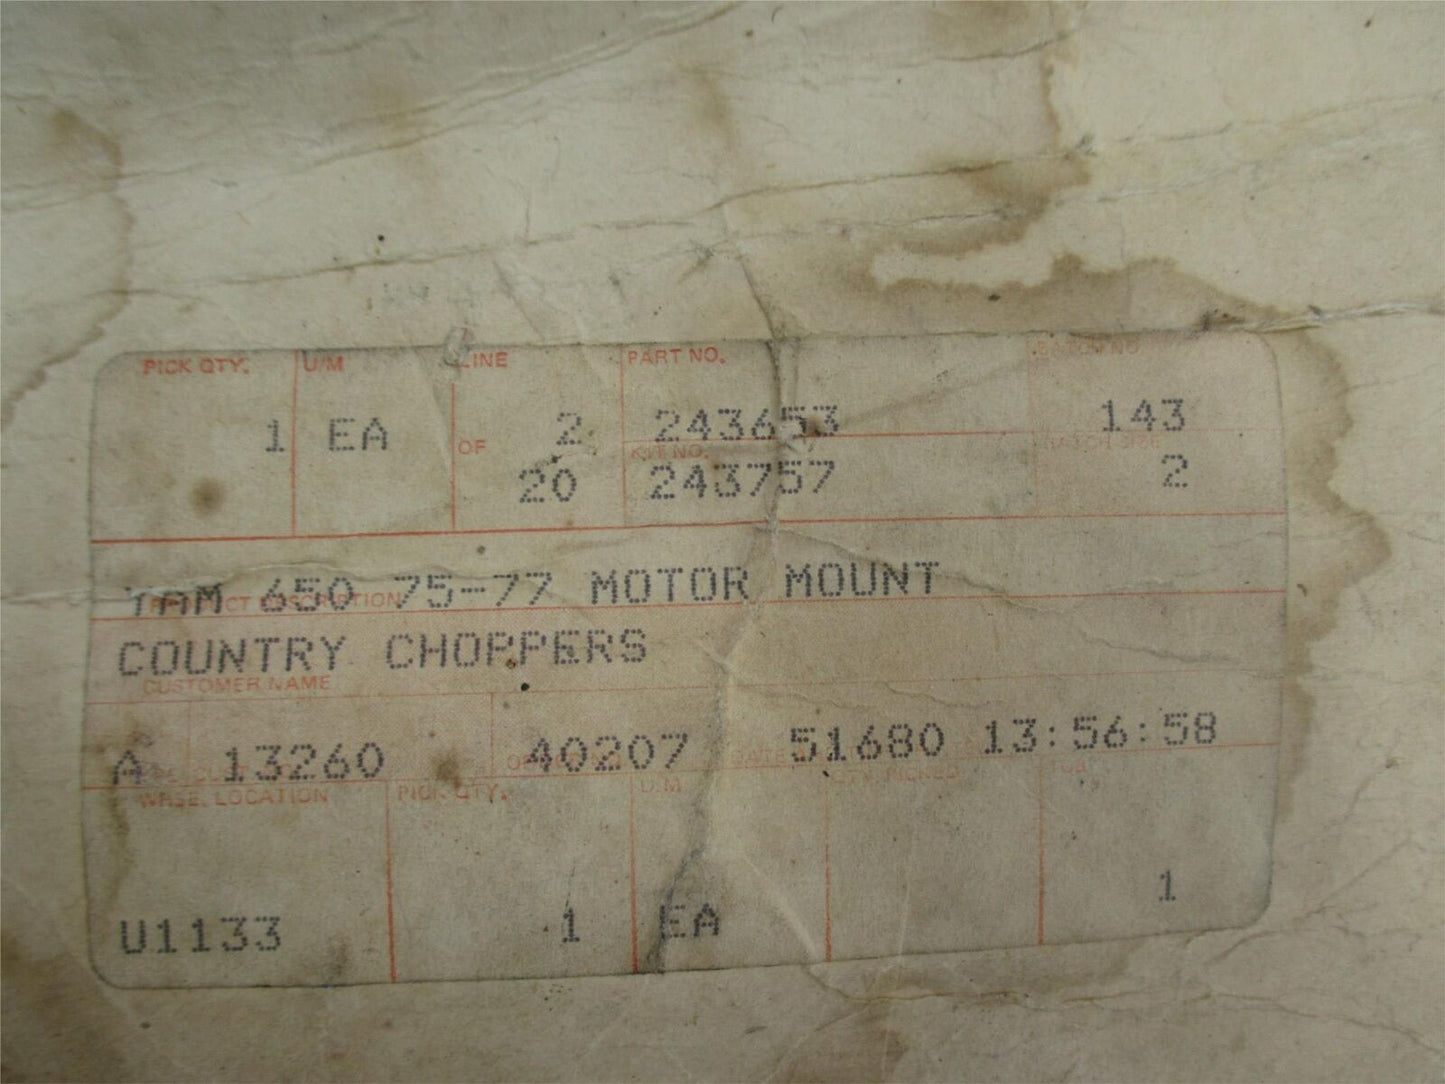 PICK QTY. U/M LINE PART NO. BATCH NO
1 EA 2 243653 143
OF KIT NO. BATCH SIZE
20 243757 2
YAM 650 75-77 MOTOR MOUNT
PRODUCT DESCRIPTION
COUNTRY CHOPPERS
CUSTOMER NAME
A 13260 40207 51680 13:56:58
DATE
WHSE. LOCATION PICK QTY. U/M QTY. PICKED TUB
U1133 1 EA 1